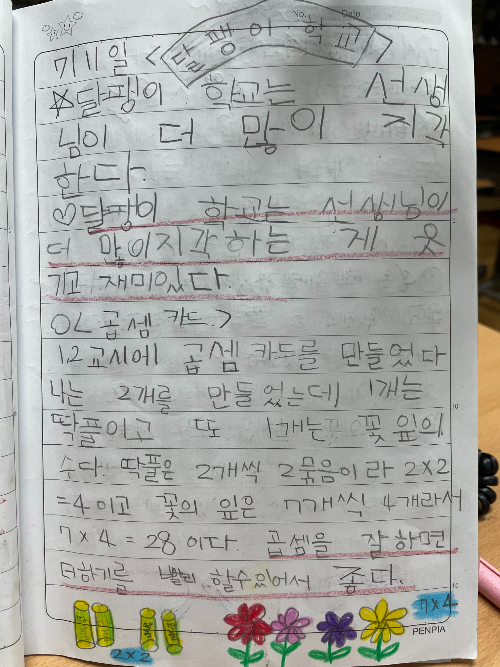 No. Date
7/11일 <달팽이 학교>
☆달팽이 학교는 선생
님이 더 많이 지각
한다.
♡달팽이 학교는 선생님이
더 많이지각하는 게 웃
기고 재미있다.
곱셈 카드.>
1,2 교시에 곱셈 카드를 만들었다
나는 2개를 만들었는데 1개는
딱풀이고 또 1개는 꽃 잎의
수다. 딱풀은 2개씩 2묶음이라 2×2
=4이고 꽃의 잎은 7개씩 4개라서
7×4=28이다. 곱셈을 잘하면
더하기를 빨리 할수있어서 좋다.
2×2
7×4
PENPIA